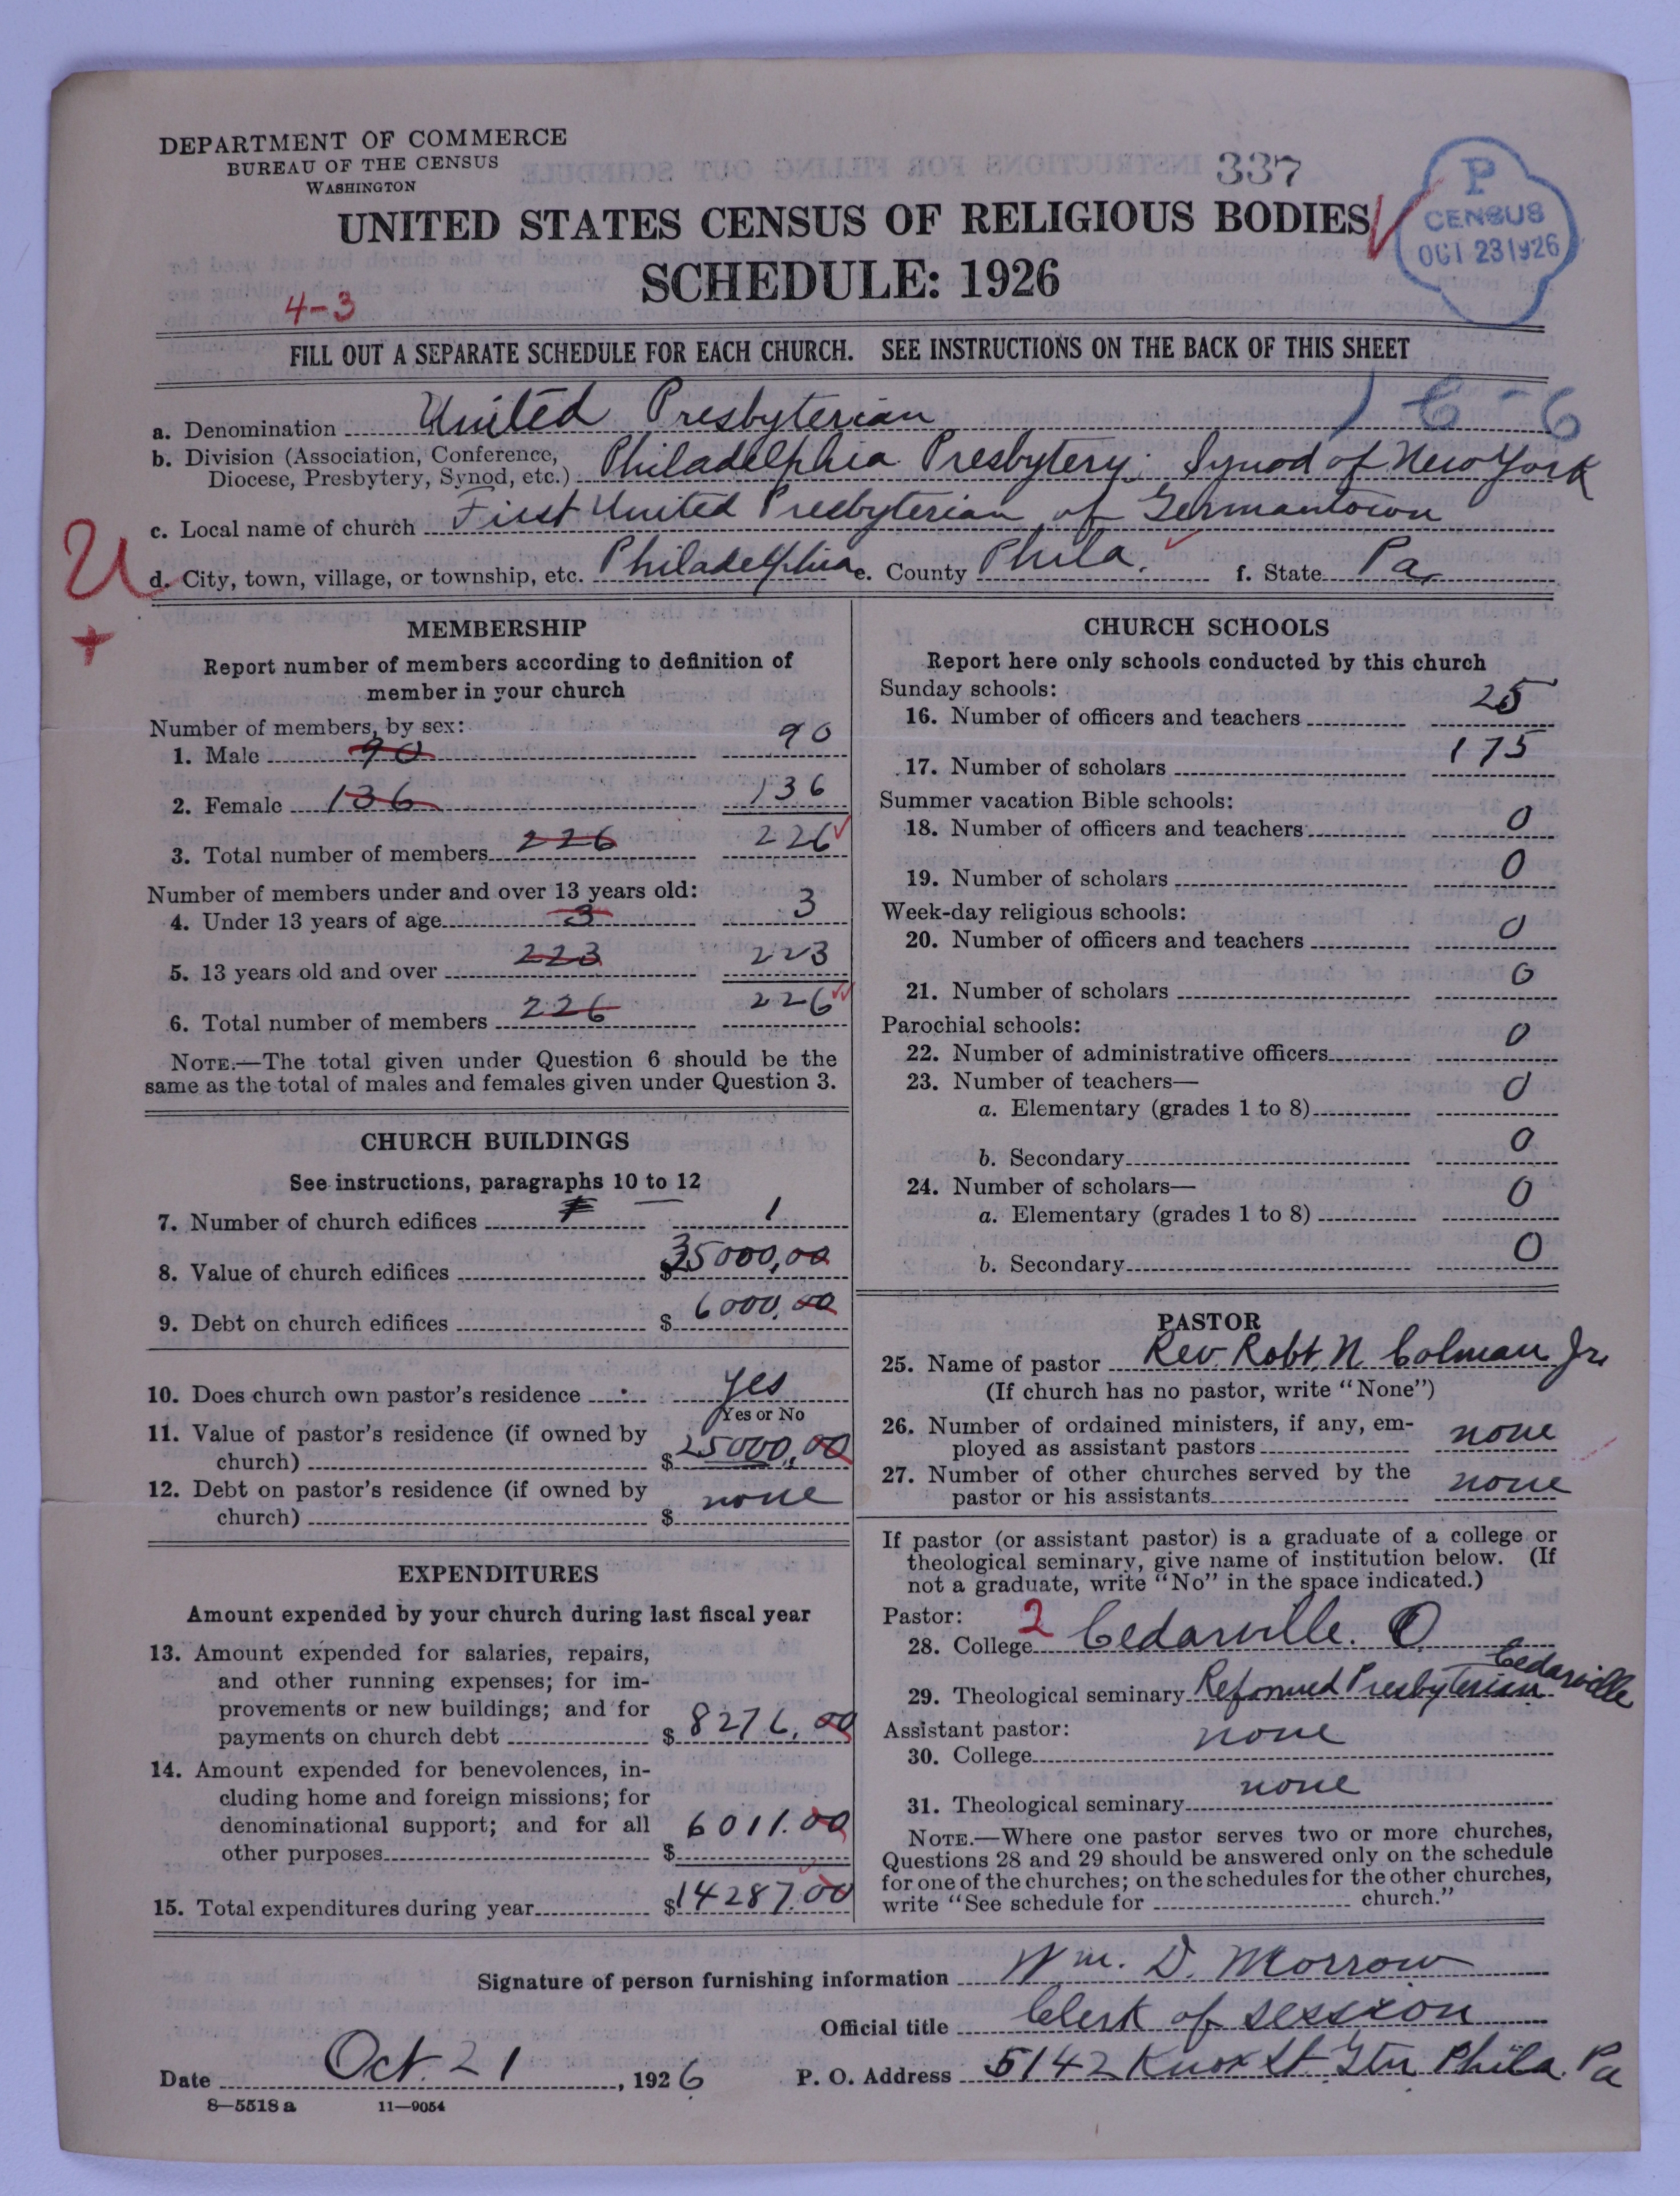 DEPARTMENT OF COMMERCE
BUREAU OF THE CENSUS
WASHINGTON
337
UNITED STATES CENSUS OF RELIGIOUS BODIES
SCHEDULE: 1926
P
CENSUS
OCT 23 1926
4-3
FILL OUT A SEPARATE SCHEDULE FOR EACH CHURCH. SEE INSTRUCTIONS ON THE BACK OF THIS SHEET
a. Denomination United Presbyterian
b. Division (Association, Conference, Diocese, Presbytery, Synod, etc.) Philadelphia Presbytery; Synod of New York
c. Local name of church First United Presbyterian of Germantown
d. City, town, village, or township, etc. Philadelphia e. County Phila. f. State Pa.
U
+
MEMBERSHIP
Report number of members according to definition of
member in your church
Number of members, by sex:
1. Male 90 90
2. Female 136 136
3. Total number of members 226 226
Number of members under and over 13 years old:
4. Under 13 years of age 3 3
5. 13 years old and over 223 223
6. Total number of members 226 226
NOTE.—The total given under Question 6 should be the
same as the total of males and females given under Question 3.
CHURCH BUILDINGS
See instructions, paragraphs 10 to 12
7. Number of church edifices 1
8. Value of church edifices $35000,00
9. Debt on church edifices $ 6000,00
10. Does church own pastor's residence yes
Yes or No
11. Value of pastor's residence (if owned by
church) $25000,00
12. Debt on pastor's residence (if owned by
church) $ none
EXPENDITURES
Amount expended by your church during last fiscal year
13. Amount expended for salaries, repairs,
and other running expenses; for im-
provements or new buildings; and for
payments on church debt $ 8276.00
14. Amount expended for benevolences, in-
cluding home and foreign missions; for
denominational support; and for all
other purposes $ 6011.00
15. Total expenditures during year $14287.00
CHURCH SCHOOLS
Report here only schools conducted by this church
Sunday schools:
16. Number of officers and teachers 25
17. Number of scholars 175
Summer vacation Bible schools:
18. Number of officers and teachers 0
19. Number of scholars 0
Week-day religious schools:
20. Number of officers and teachers 0
21. Number of scholars 0
Parochial schools:
22. Number of administrative officers 0
23. Number of teachers—
a. Elementary (grades 1 to 8) 0
b. Secondary 0
24. Number of scholars—
a. Elementary (grades 1 to 8) 0
b. Secondary 0
PASTOR
25. Name of pastor Rev. Robt. N. Colman Jr.
(If church has no pastor, write "None")
26. Number of ordained ministers, if any, em-
ployed as assistant pastors none
27. Number of other churches served by the
pastor or his assistants none
If pastor (or assistant pastor) is a graduate of a college or
theological seminary, give name of institution below. (If
not a graduate, write "No" in the space indicated.)
Pastor:
28. College 2 Cedarville. O
29. Theological seminary Reformed Presbyterian Cedarville
Assistant pastor:
30. College none
31. Theological seminary none
NOTE.—Where one pastor serves two or more churches,
Questions 28 and 29 should be answered only on the schedule
for one of the churches; on the schedules for the other churches,
write "See schedule for church."
Signature of person furnishing information Wm. D. Morrow
Official title Clerk of session
Date Oct. 21, 1926 P. O. Address 5142 Knox St. Gtn Phila. Pa
8—5518 a 11—9054